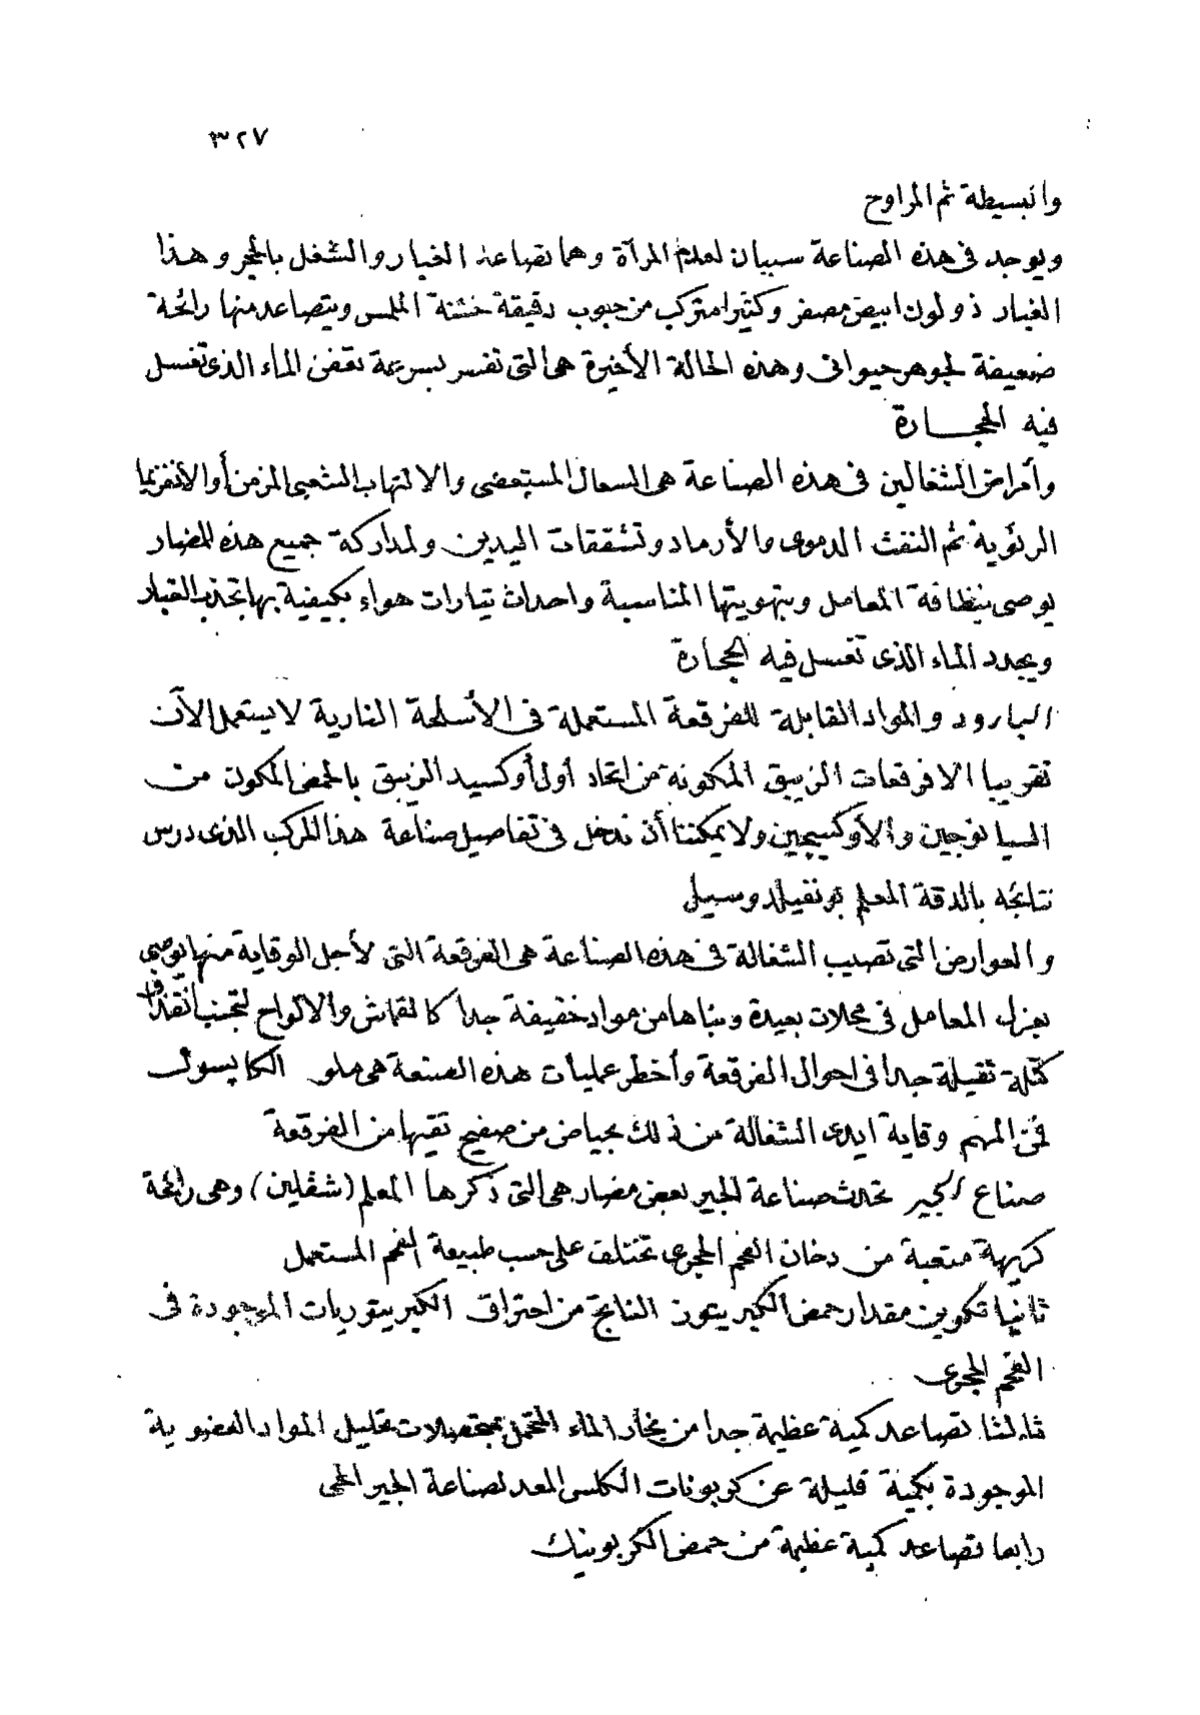 ٣٢٧
والبسيطة ثم المراوح
ويوجد فى هذه الصناعة سببان لعدم المرآة وهما تصاعد الغبار والشغل بالحجر وهذا
الغبار ذو لون ابيض مصفر وكثيرا متركب من حبوب دقيقة خشنة الملمس ويتصاعد منها رائحة
ضعيفة لجوهر حيوانى وهذه الحالة الأخيرة هى التى تفسر بسرعة تعفن الماء الذى تغسل
فيه الحجارة
وأمراض الشغالين فى هذه الصناعة هى السعال المستعصى والالتهاب الشعبى المزمن أو الأنفزيما
الرئوية ثم النفث الدموى والأرماد وتشققات اليدين ولمداركة جميع هذه المضار
يوصى بنظافة المعامل وبتهويتها المناسبة واحداث تيارات هواء بكيفية بها تجذب الغبار
ويجدد الماء الذى تغسل فيه الحجارة
البارود والمواد القابلة للفرقعة المستعملة فى الأسلحة النارية لا يستعمل الآن
تقريبا الا فرقعات الزيبق المكونة من اتحاد أول أوكسيد الزيبق بالحمض المكون من
السيانوجين والأوكسيجين ولا يمكننا أن ندخل فى تفاصيل صناعة هذا المركب الذى درس
نتائجه بالدقة المعلم بونفيلد وسيل
والعوارض التى تصيب الشغالة فى هذه الصناعة هى الفرقعة التى لأجل الوقاية منها يوصى
بعزل المعامل فى محلات بعيدة وبناها من مواد خفيفة جدا كالقماش والالواح لتجنب انقذاف
كتلة ثقيلة جدا فى احوال الفرقعة وأخطر عمليات هذه الصنعة هى ملو الكابسول
فمن المهم وقاية ايدى الشغالة من ذلك بحياض من صفيح تقيها من الفرقعة
صناع الجير تحدث صناعة الجير بعض مضار هى التى ذكرها المعلم (شفلين) وهى رائحة
كريهة متعبة من دخان الفحم الحجرى تختلف على حسب طبيعة الفحم المستعمل
ثانيا تكوين مقدار حمض الكبريتوز الناتج من احتراق الكبريتوريات الموجودة فى
الفحم الحجرى
ثالثا تصاعد كمية عظيمة جدا من بخار الماء المتحمل بمتحصلات تحليل المواد العضوية
الموجودة بكمية قليلة عن كربونات الكلس المعد لصناعة الجير الحى
رابعا تصاعد كمية عظيمة من حمض الكربونيك